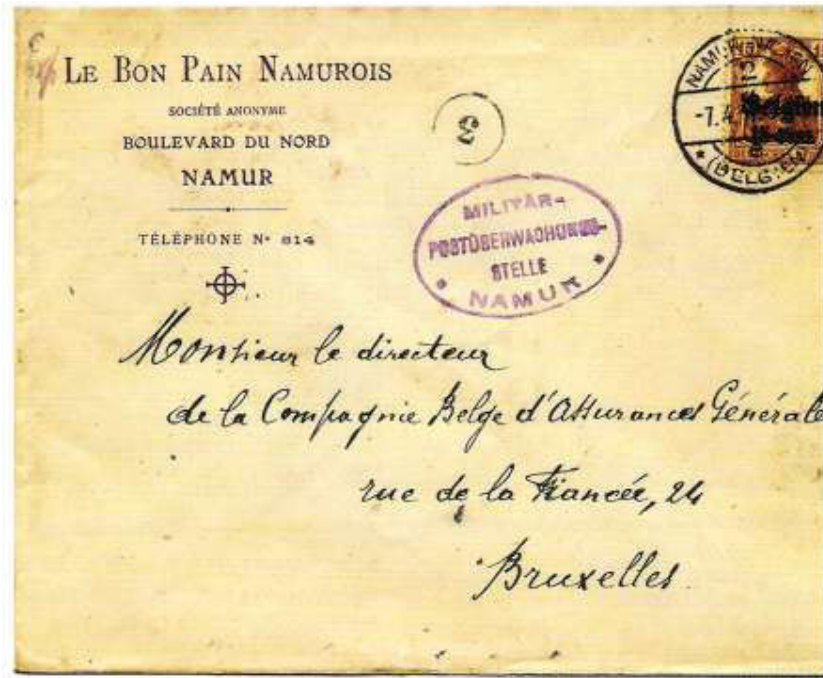 LE BON PAIN NAMUROIS
SOCIÉTÉ ANONYME
BOULEVARD DU NORD
NAMUR
TÉLÉPHONE No 814
3
-7.4
(BELGIEN)
MILITÄR-
POSTÜBERWACHUNGS-
STELLE
NAMUR
Monsieur le directeur
de la Compagnie Belge d'Assurances Générale
rue de la Fiancée, 24
Bruxelles.